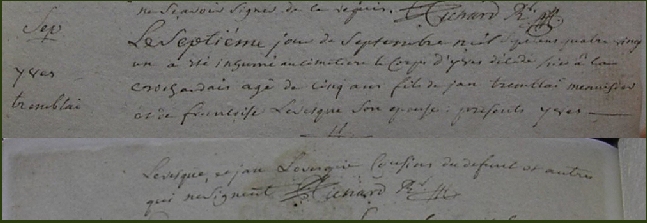 ne savoir signer de ce requis. Richard Rr
Sep
Le Septiéme jour de Septembre mil Sept cens quatre vingt
un a été inhumé au cimetiere le Corps d'yves décédé hier à la
yves
agé de cinq ans fils de jan tremblai menuisier
tremblai
et de francoise Levesque Son epouse : presents yves
Levesque, et jan Levesque Cousins du defunt et autres
qui ne Signent Richard Rr